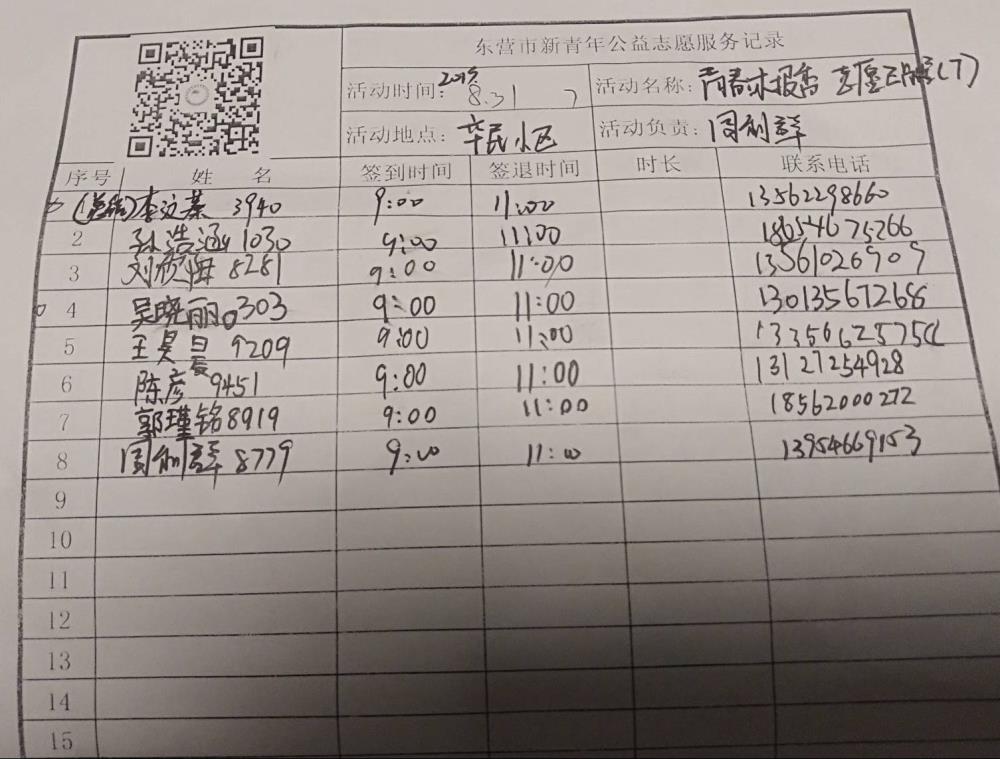 东营市新青年公益志愿服务记录
活动时间: 8.31 活动名称: 青春
活动地点: 辛民小区 活动负责: 周利群
序号 姓 名 签到时间 签退时间 时长 联系电话
3940 9:00 11:00 13562298660
2 孙浩涵 1030 9:00 11:00 18654675266
3 刘欣梅 8281 9:00 11:00 13561026909
4 吴晓丽 0303 9:00 11:00 13013567268
5 王昊晨 9209 9:00 11:00
6 陈彦 9451 9:00 11:00 13127254928
7 郭瑾铭 8919 9:00 11:00 18562000272
8 周利群 8779 9:00 11:00 13954669153
9
10
11
12
13
14
15